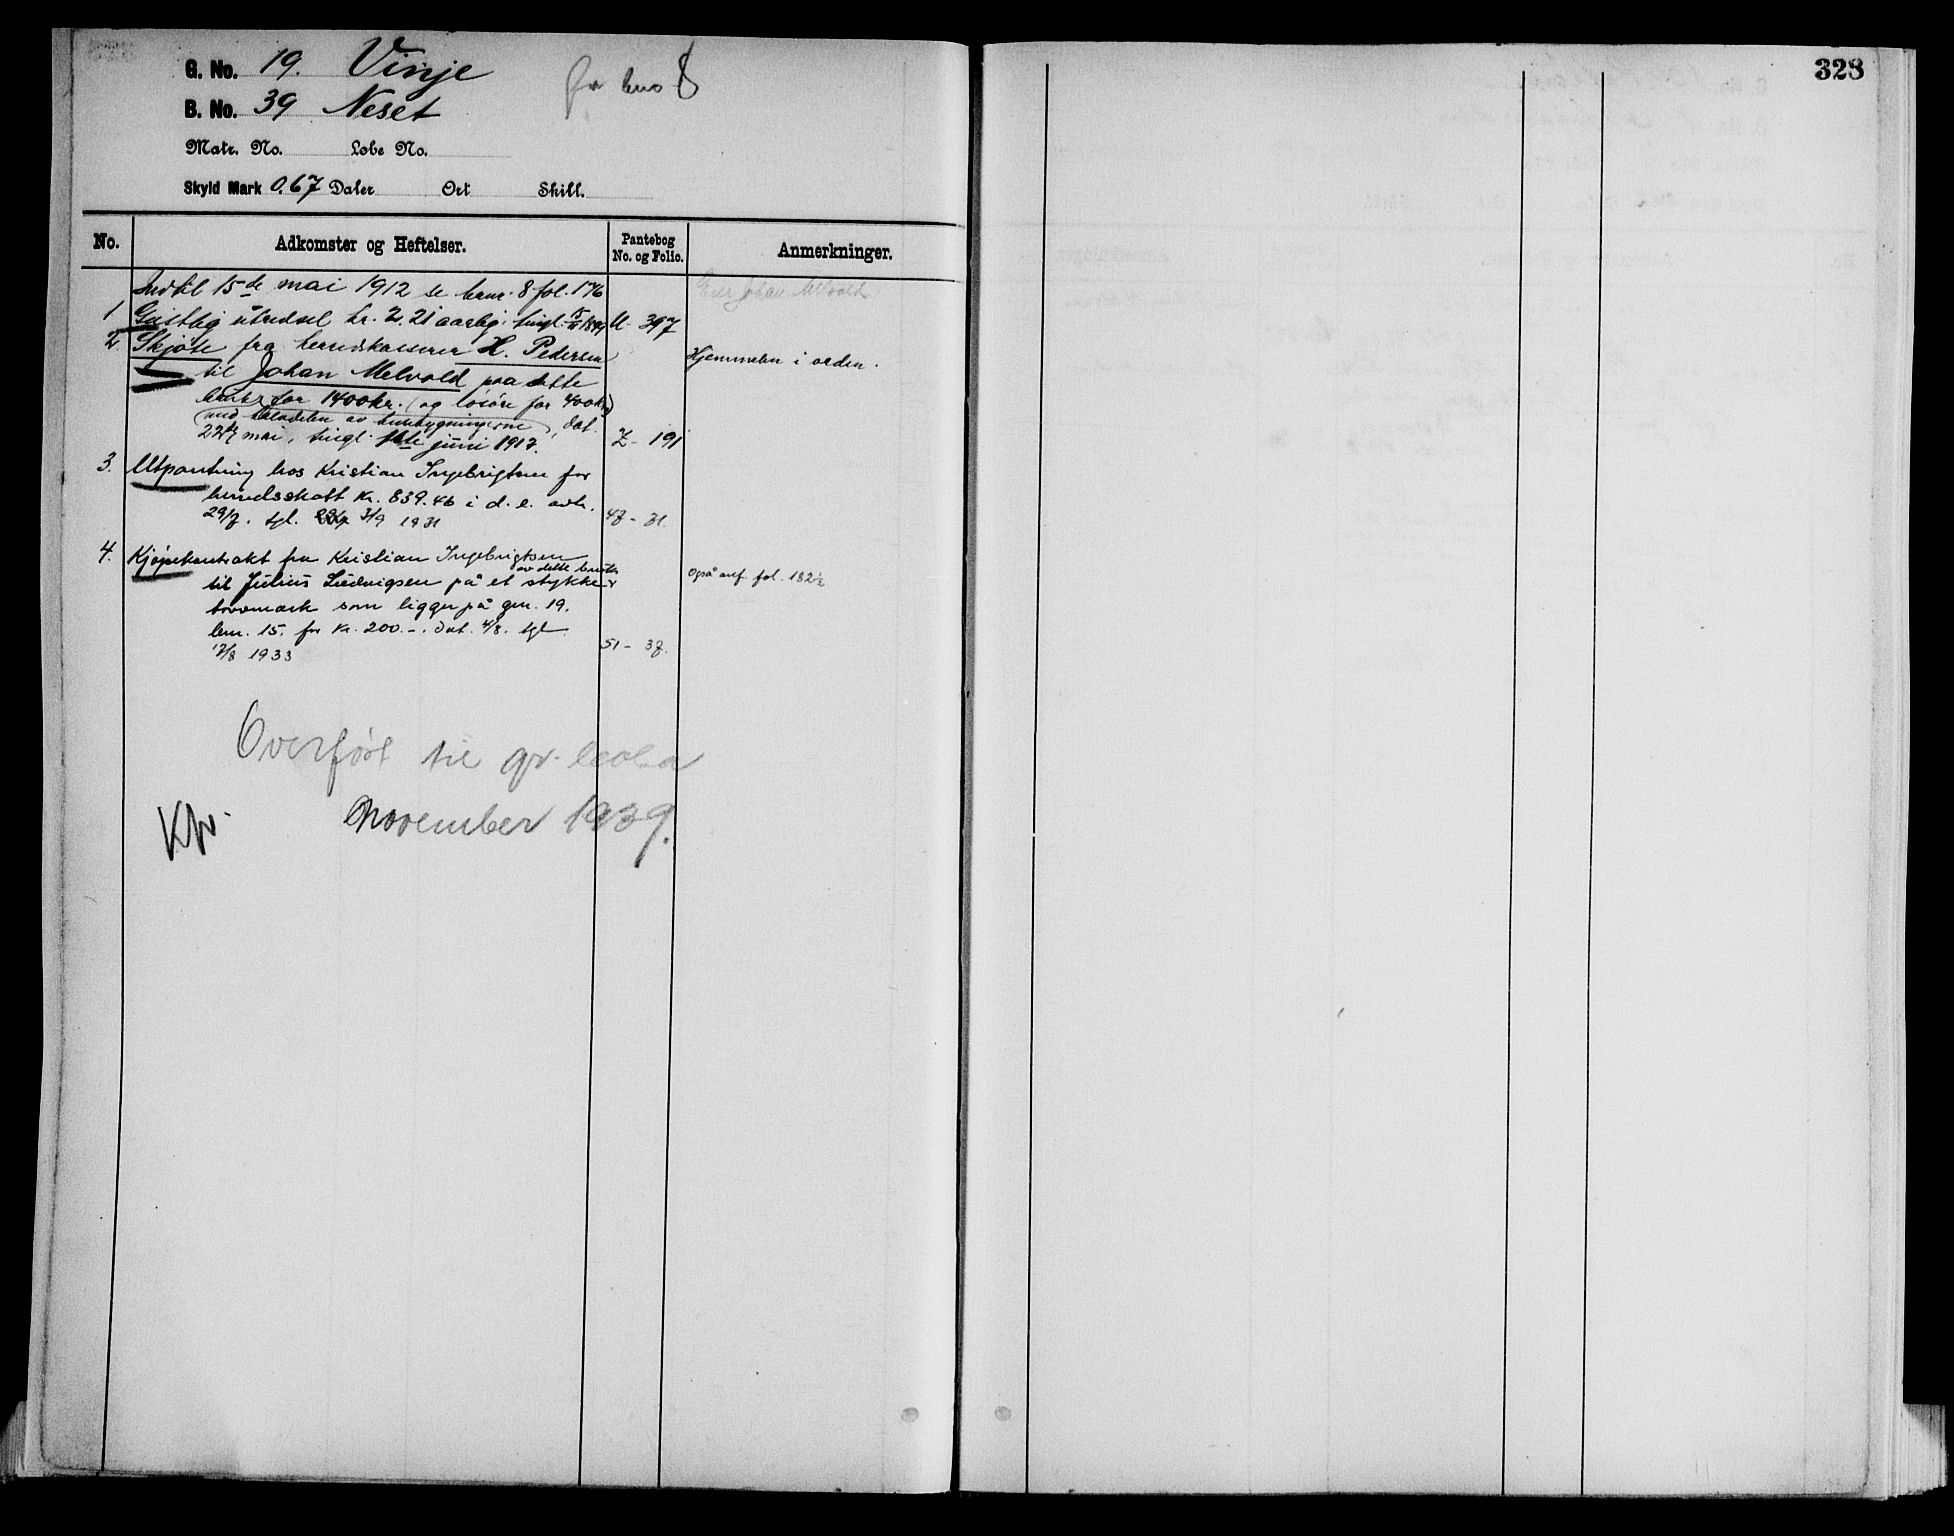 328
G. No. 19. Vinje
fra bno 8
B. No. 39 Neset
Matr. No. Løbe No.
Skyld Mark 0.67 Daler Ort Skill.
No. Adkomster og Heftelser. Pantebog No. og Folio. Anmerkninger.
Indtil 15de mai 1912 se brnr. 8 fol. 176
Eier Johan Melvold
1 Geistlig utredsel kr. 2.21 aarlig. tingl. 1891 U - 397
2. Skjøte fra herredskasserer H. Pedersen
Hjemmelen i orden.
til Johan Melvold paa dette
bruk for 1400 kr. (og løsøre for 400 kr)
med av husbygningerne, dat.
22de mai, tingl. 1ste juni 1912. Z - 191
3. Utpantning hos Kristian Ingebrigtsen for
herredsskatt kr. 839.46 i d. e. avh.
29/7. tgl. 3/9 1931 47 - 31.
4. Kjøpekontrakt fra Kristian Ingebrigtsen
av dette bruk
til Julius Ludvigsen på et stykke
også anf. fol. 182½
torvmark som ligger på gnr. 19.
bnr. 15. for kr. 200.-. Dat. 4/8. tgl.
17/8 1933 51 - 37.
Overført til gr. boka
november 1939.
Kfr.